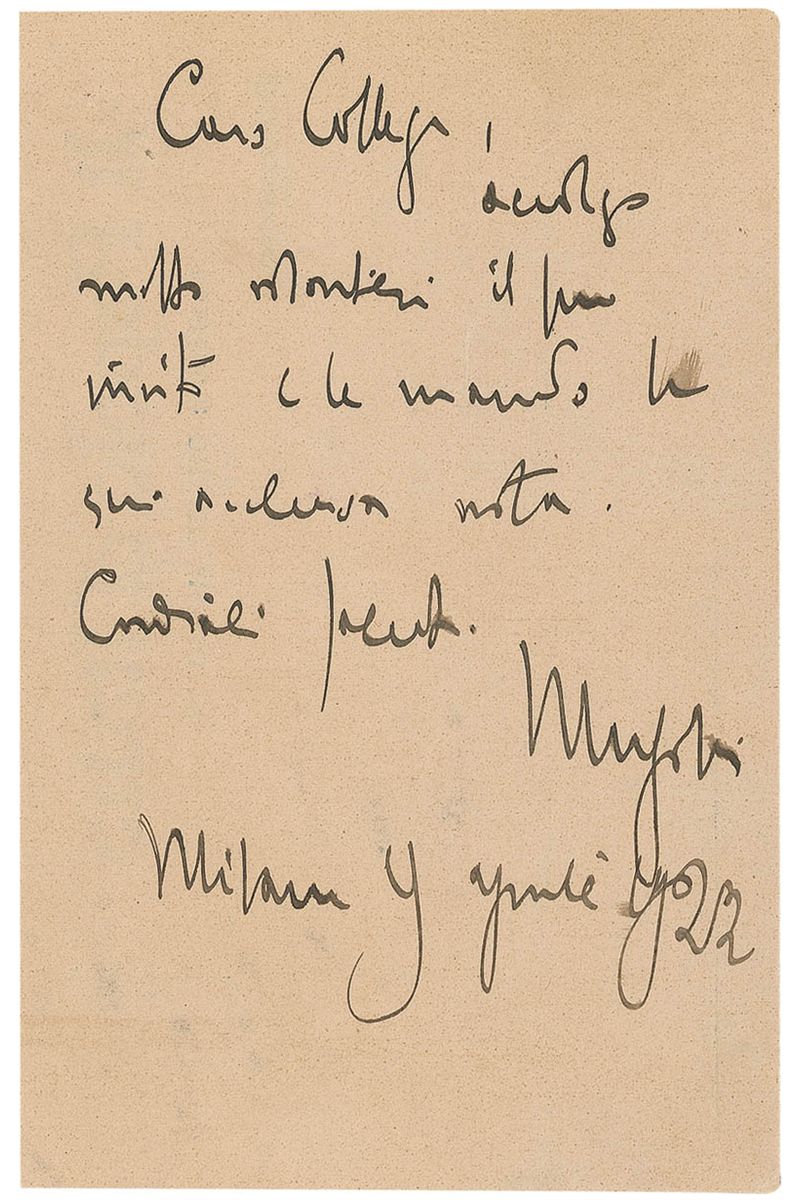 Caro Collega,
accolgo
molto volontieri il suo
invito e le mando la
qui acclusa nota.
Cordiali saluti.
Mussolini
Milano 9 aprile 922